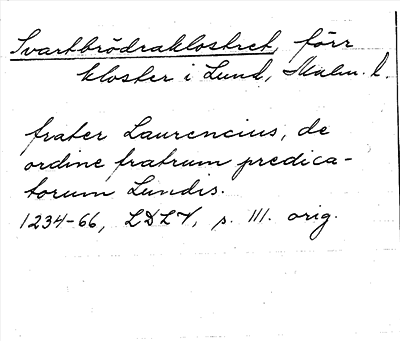 Svartbrödraklostret, förr
kloster i Lund, Malm. l.
frater Laurencius, de
ordine fratrum predica-
torum Lundis.
1234-66, LDLV, p. 111. orig.